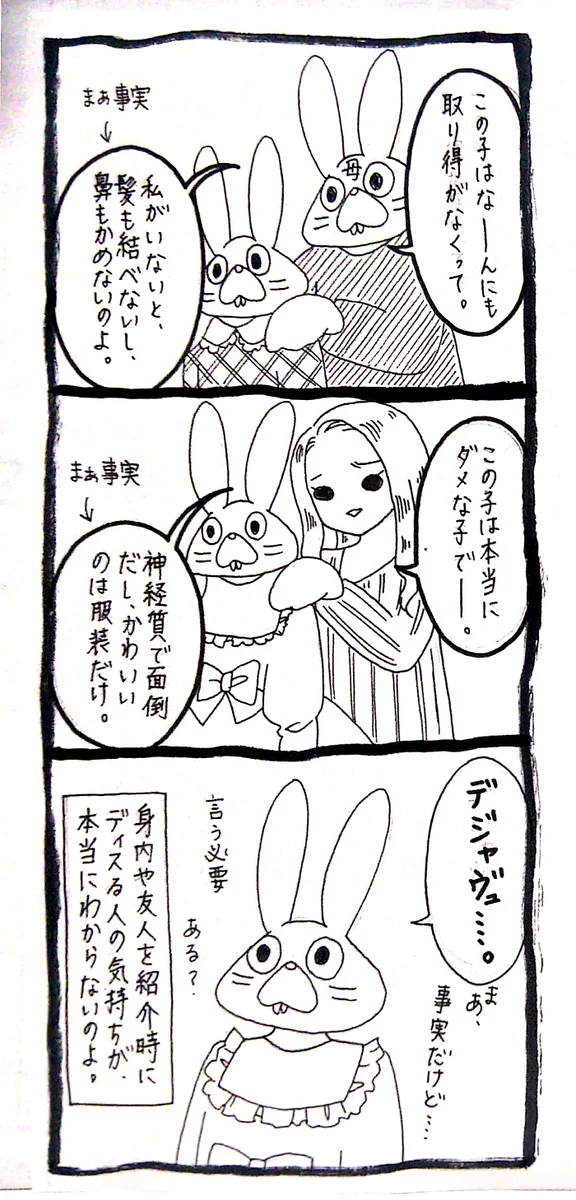 この子はなーんにも
取り得がなくって。
母
私がいないと、
髪も結べないし、
鼻もかめないのよ。
まぁ事実
この子は本当に
ダメな子でー。
神経質で面倒
だし、かわいい
のは服装だけ。
まぁ事実
デジャヴュ……。
まあ、
事実だけど…
言う必要
ある?
身内や友人を紹介時に
ディスる人の気持ちが、
本当にわからないのよ。